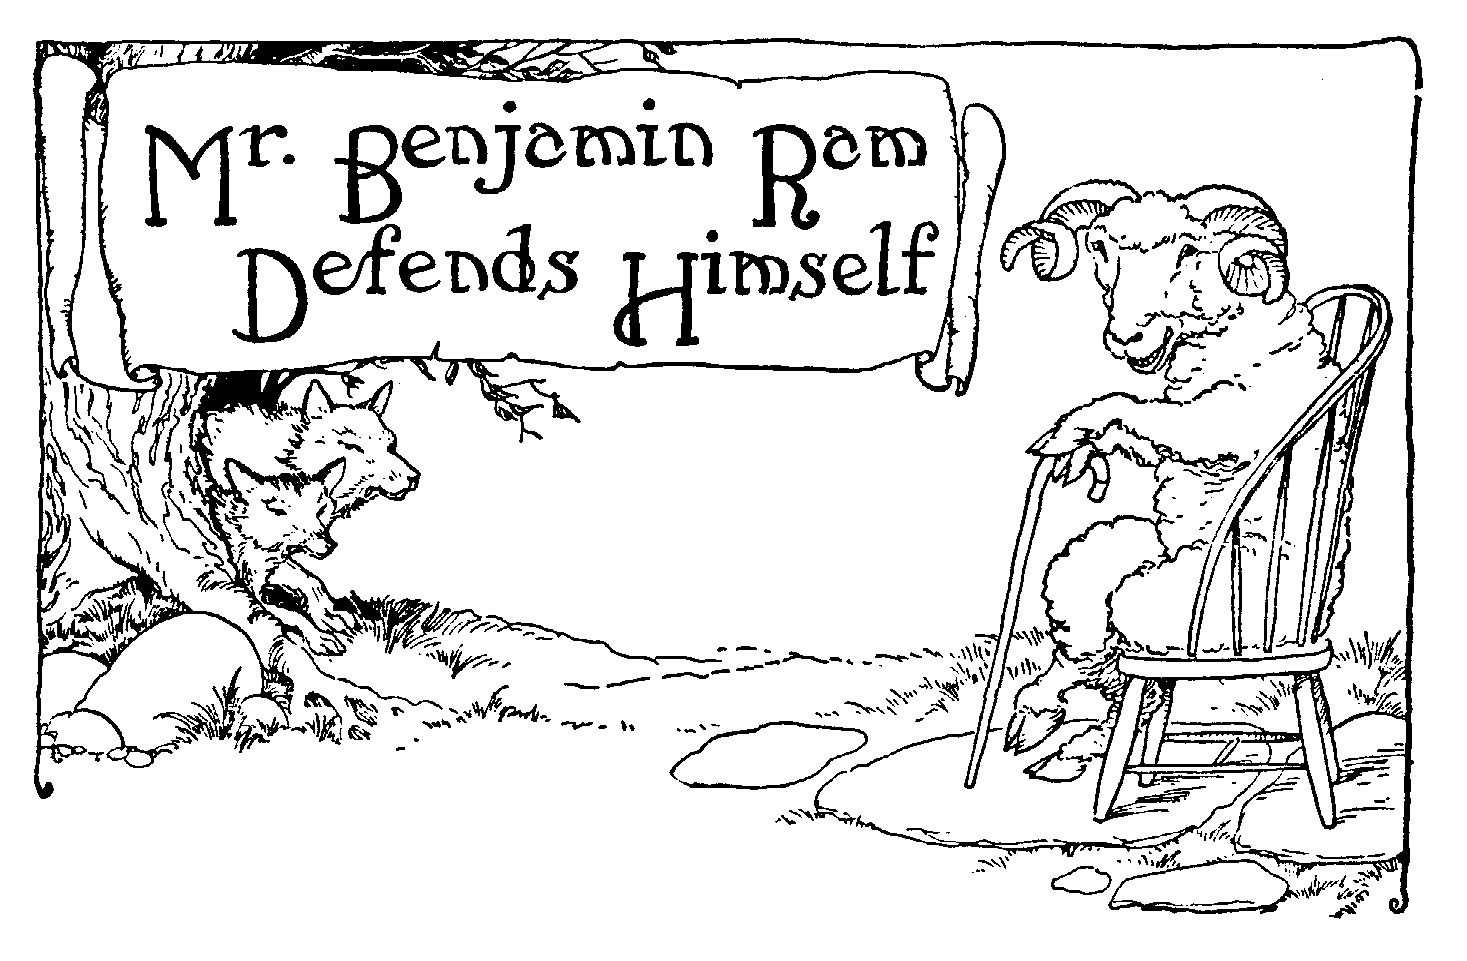 Mr. Benjamin Ram
Defends Himself